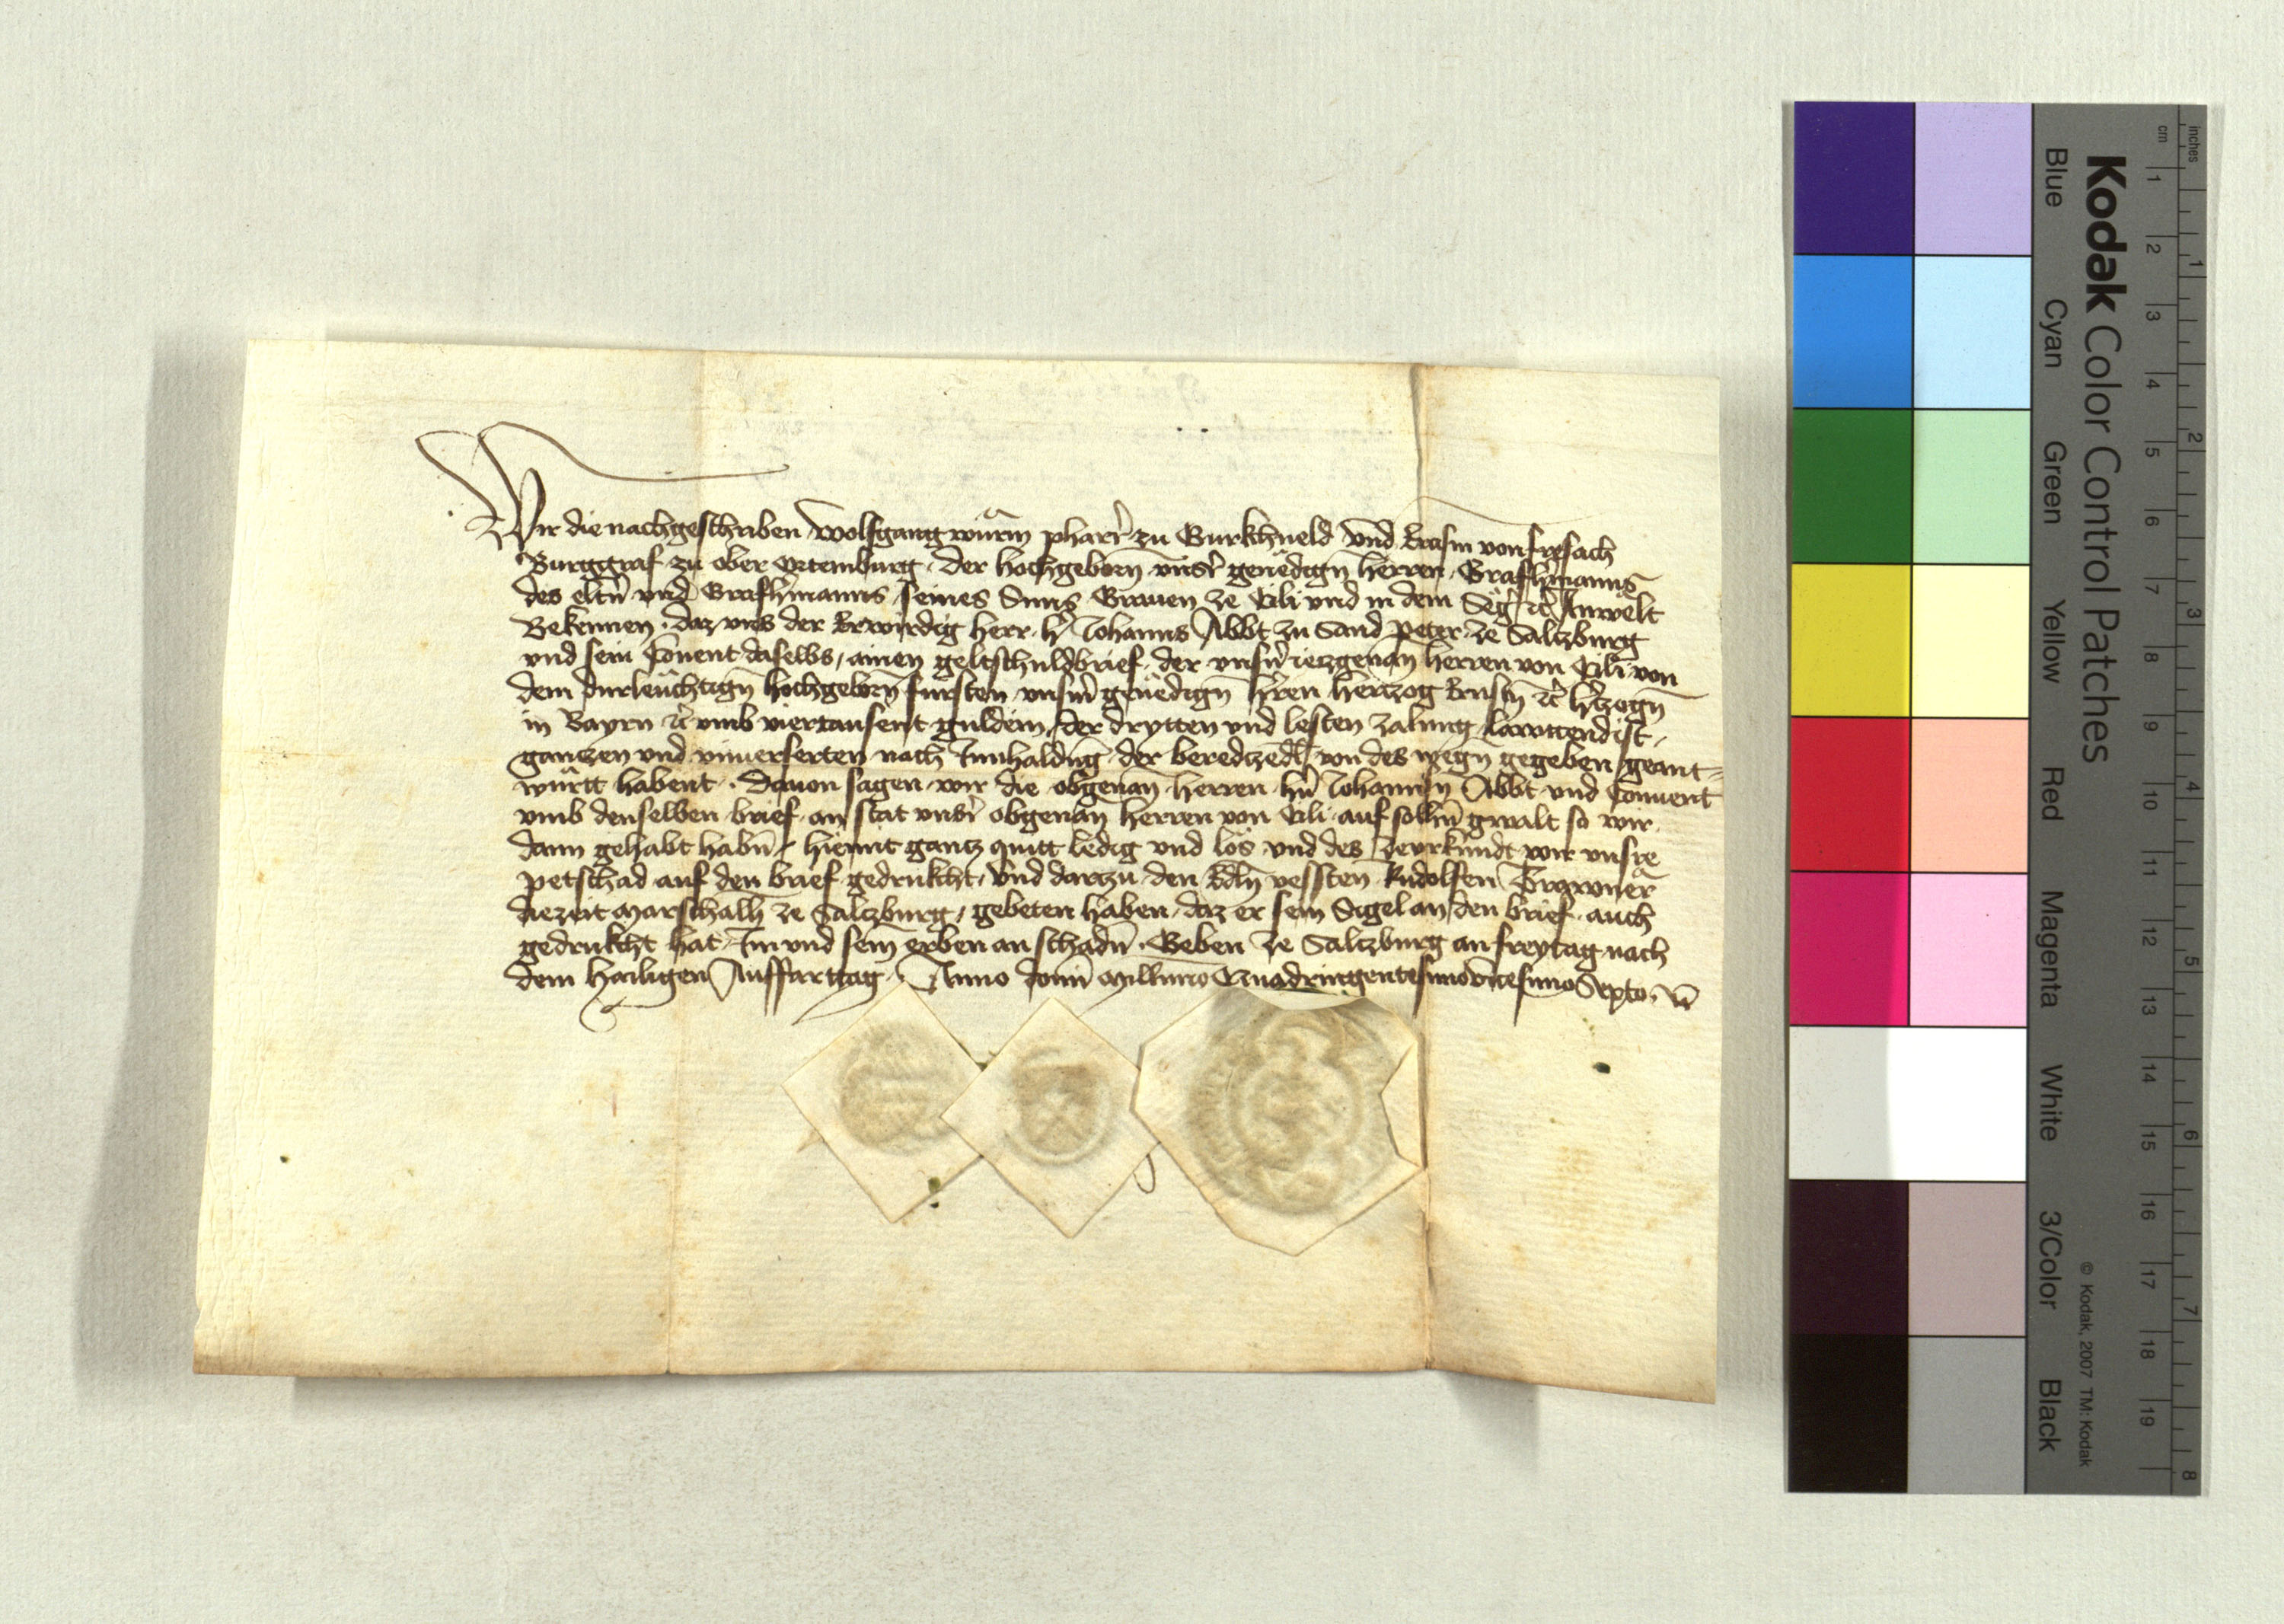 Wir die nachgeschriben Wolfgang würm pharr̄ zu Gurkchueld vnd Erasm von fresach
Burggraf zu ober Ortemburg der hochgeborn̄ vnsr̄ genëdign̄ herren Graf hrmanns
des eltn̄ vnd Graf hrmanns seines Suns Grauen ze Cili vnd in dem Seg̈r ꝛc Anwëlt
Bekennen daz vns der Erwirdig herr hr̄ Johanns Abbt zu Sand Peter ze Saltzburg
vnd sein Conuent daselbs ainen geltschuldbrief der vnsn̄ ietzgenan̄ herren von Cili von
dem durleüchtign̄ hochgeborn̄ fürsten vnsm̄ genëdign̄ hr̄ren hertzog Ernstn̄ ꝛc hr̄tzogn̄
in Bayrn ꝛc vmb viertausent guldein der drytten vnd lesten zalung lawttend ist
gantzen vnd vnuerserten nach Innhaldūg der beredtzedl von des wegn̄ gegeben geant=
württ habent Dauon sagen wir die obgenan̄ herren hn̄ Johannsn̄ Abbt vnd Conuent
vmb denselben brief an stat vnsr̄ obgenan̄ herren von Cili auf solhn̄ gwalt so wir
dann gehabt habn̄ hiemit gantz quitt ledig vnd los vnd des zeurkundt wir vnsre
petschad auf den brief gedrukcht Vnd dartzu den Edln̄ vessten Rudolfen Trawner
diezeit Marschalh ze Saltzburg gebeten haben daz er sein Sigel an den brief auch
gedrukcht hat Im vnd sein̄ erben an schadn̄ Geben ze Saltzburg an freytag nach
dem heiligen Auffarttag Anno domī Millīmo Quadringentesimovicesimo Sexto
Kodak Color Control Patches
Blue Cyan Green Yellow Red Magenta White 3/Color Black
© Kodak, 2007 TM: Kodak
cm 1 2 3 4 5 6 7 8 9 10 11 12 13 14 15 16 17 18 19
inches 1 2 3 4 5 6 7 8